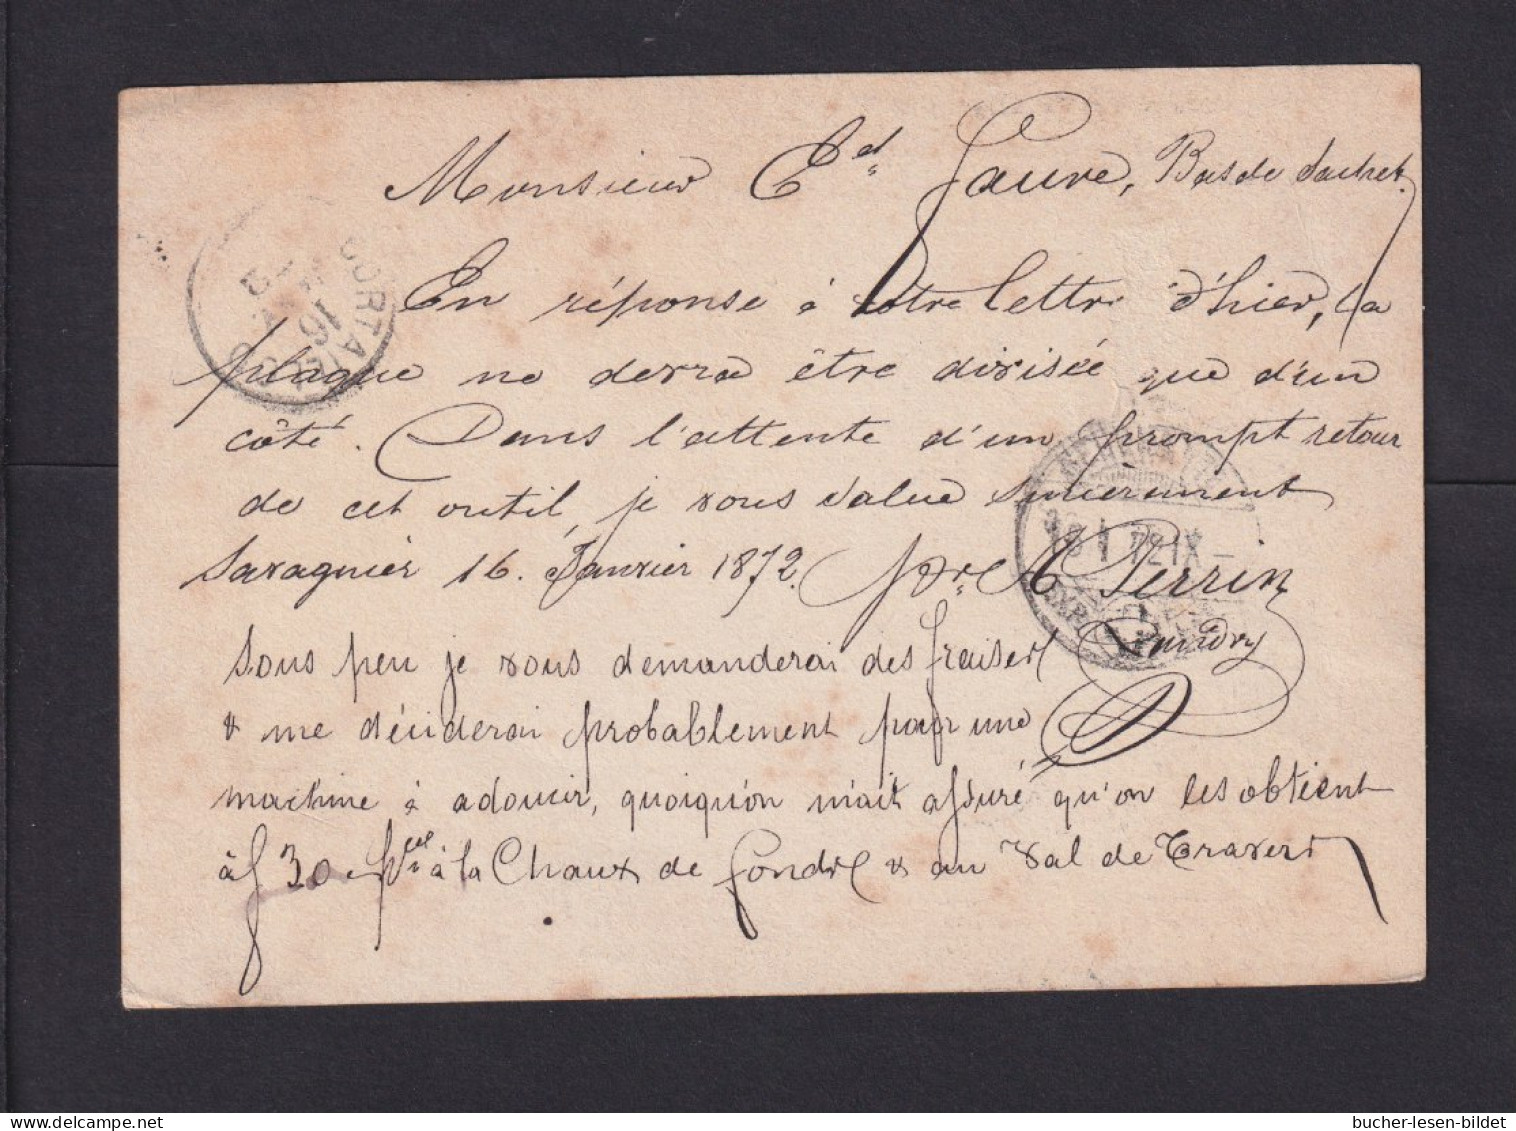 Monsieur Ed. Faure, Bas de Sachet.
En réponse à votre lettre d'hier, la
plaque ne devra être divisée que d'un
côté. Dans l'attente d'un prompt retour
de cet outil, je vous salue sincèrement
Savagnier 16. Janvier 1872. pr A Perrin
Sous peu je vous demanderai des fraises
& me déciderai probablement pour une
machine à adoucir, quoiqu'on m'ait assuré qu'on les obtient
à f 30 à la Chaux de fonds & au Val de Travers
CORTAILLOD
16
NEUCHATEL
16 I 72 IX
bucher-lesen-bildet